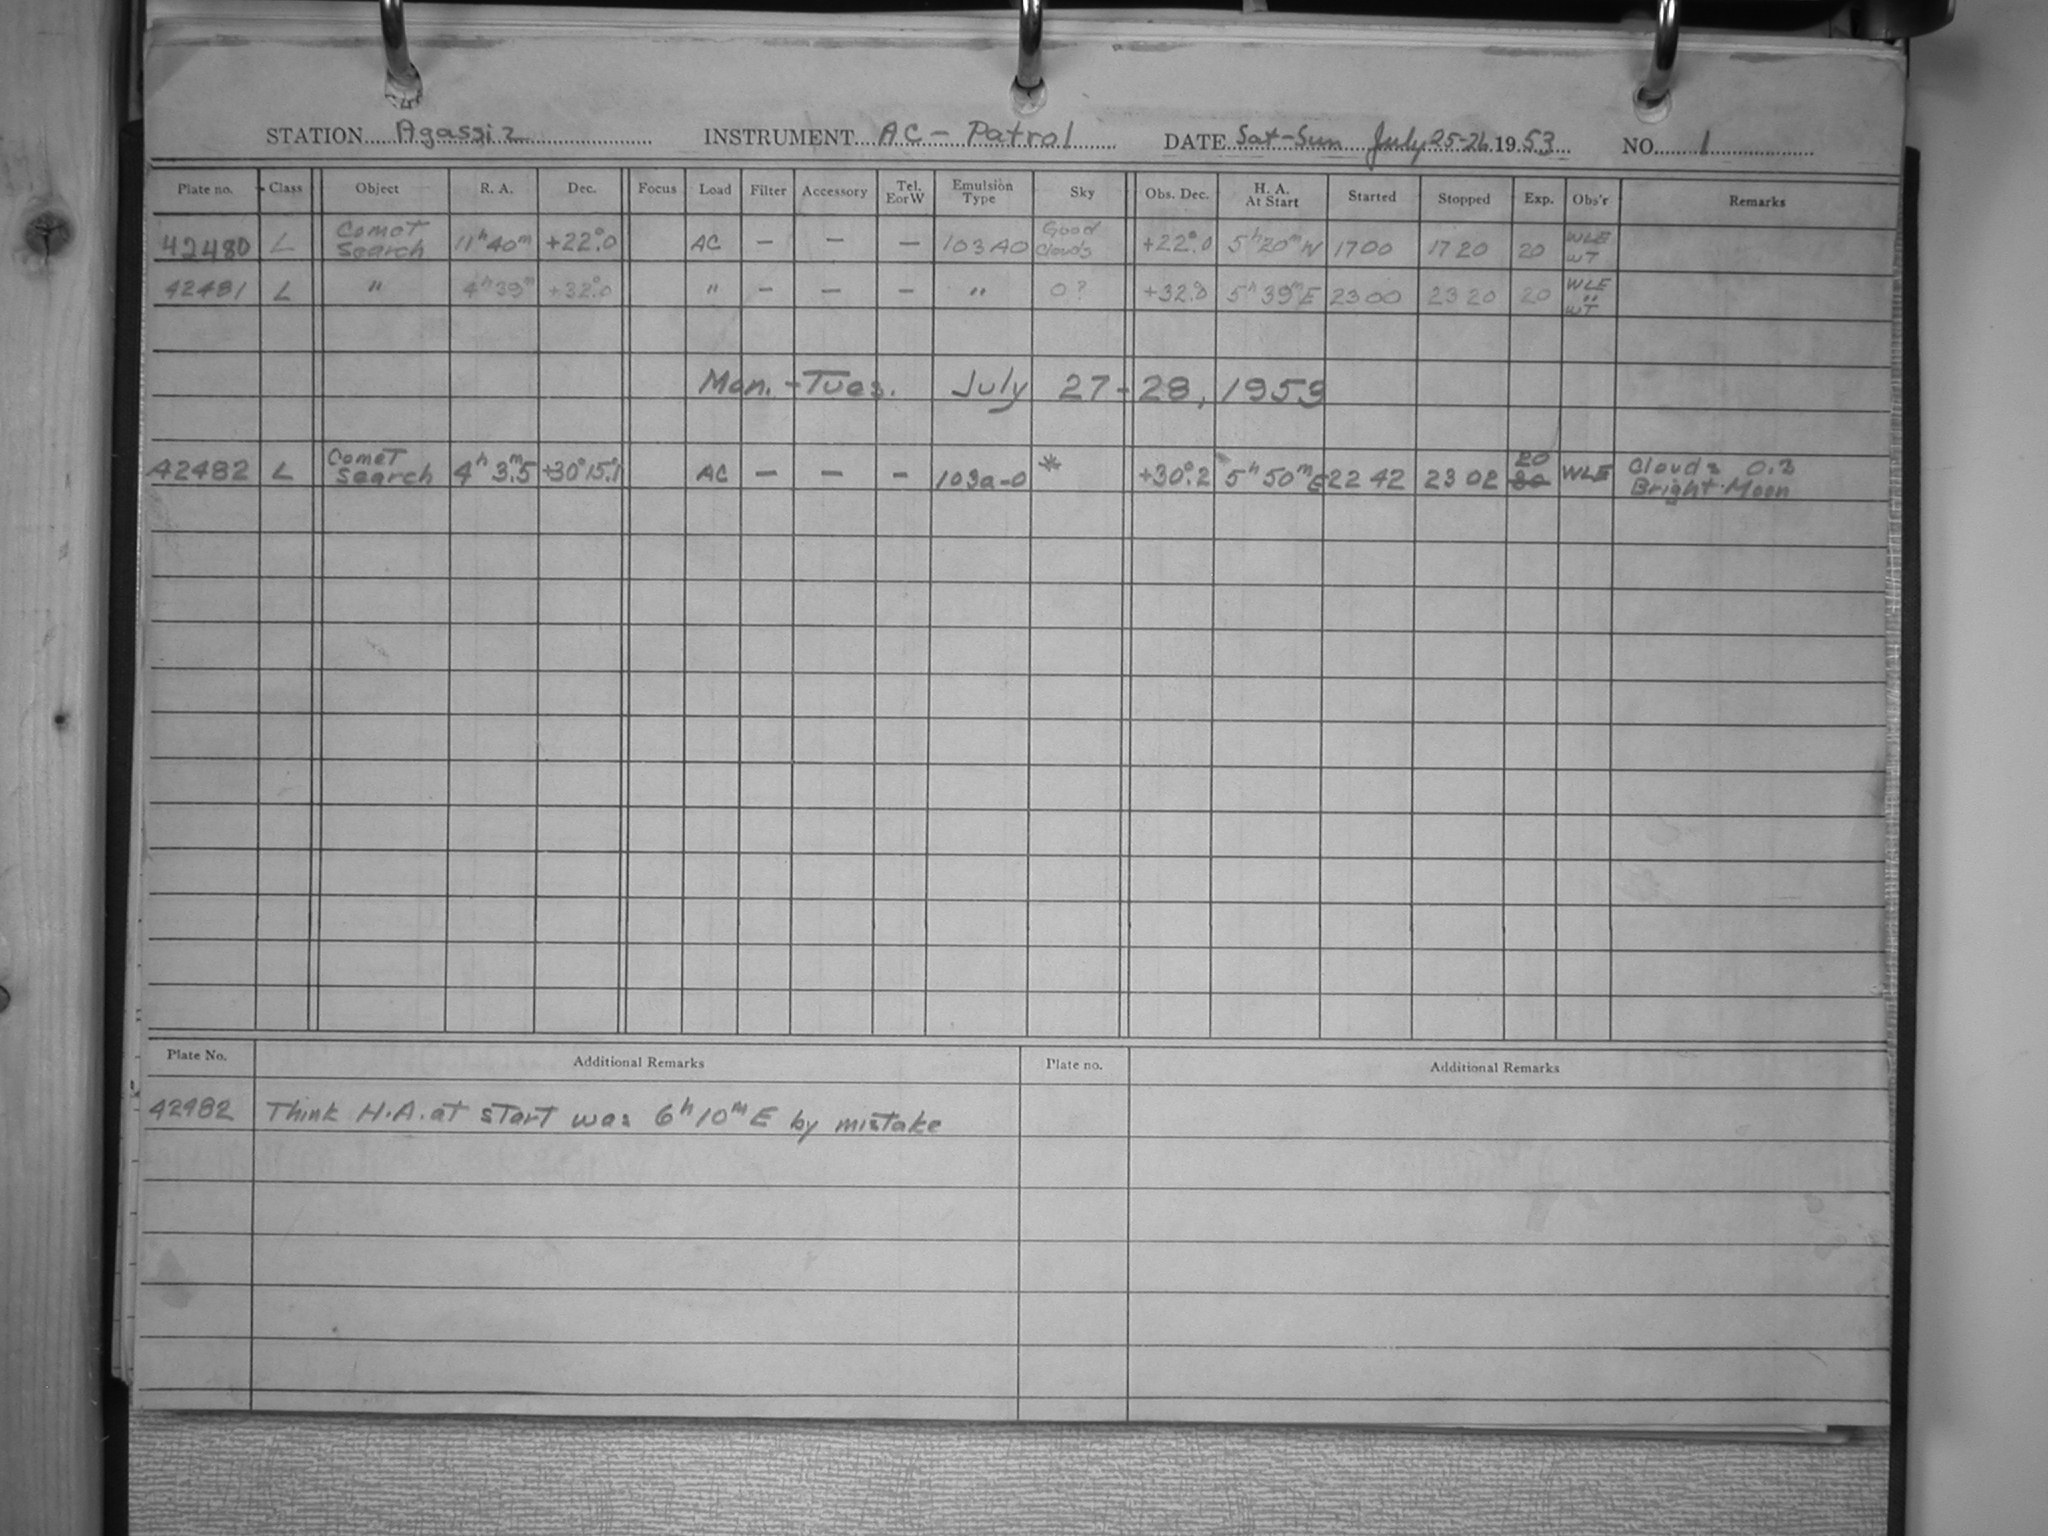 STATION Agassiz INSTRUMENT AC - Patrol DATE Sat-Sun July 25-26 1953 NO. 1
Plate no. Class Object R. A. Dec. Focus Load Filter Accessory Tel. E or W Emulsion Type Sky Obs. Dec. H. A. At Start Started Stopped Exp. Obs'r Remarks
42480 L Comet Search 11h 40m +22°.0 AC - - - 103AO Good Clouds +22°.0 5h 20m W 1700 1720 20 WLE WT
42481 L " 4h 39m +32°.0 " - - - " 0? +32.0 5h 39m E 2300 2320 20 WLE " WT
Mon. - Tues. July 27-28, 1953
42482 L Comet Search 4h 3m.5 +30°15'.1 AC - - - 103a-O * +30°.2 5h 50m E 22 42 23 02 20 WLE Clouds 0.3 Bright Moon
Plate No. Additional Remarks Plate no. Additional Remarks
42482 Think H.A. at start was 6h 10m E by mistake